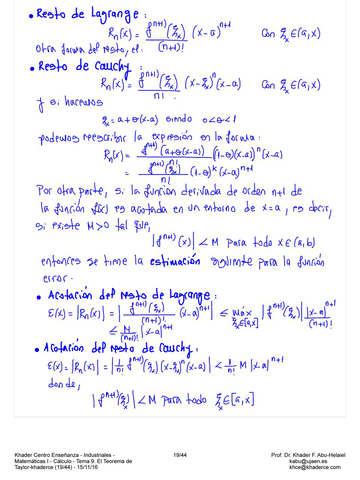 • Resto de Lagrange:
Rₙ(x) = f⁽ⁿ⁺¹⁾(ξₓ)/(n+1)! (x-a)ⁿ⁺¹ Con ξₓ∈(a,x)
Otra forma del resto, el:
• Resto de Cauchy:
Rₙ(x) = f⁽ⁿ⁺¹⁾(ξₓ)/n! (x-ξₓ)ⁿ(x-a) Con ξₓ∈(a,x)
y si hacemos
ξₓ = a+θ(x-a) siendo 0<θ<1
podemos reescribir la expresión en la forma:
Rₙ(x) = f⁽ⁿ⁺¹⁾(a+θ(x-a))/n! (1-θ)(x-a))ⁿ(x-a)
= f⁽ⁿ⁺¹⁾(ξₓ)/n! (1-θ)ᵏ(x-a)ⁿ⁺¹
Por otra parte, si la función derivada de orden n+1 de
la función f(x) es acotada en un entorno de x=a, es decir,
si existe M>0 tal que,
|f⁽ⁿ⁺¹⁾(x)| < M para todo x∈(a,b)
entonces se tiene la estimación siguiente para la función
error.
• Acotación del resto de Lagrange:
E(x) = |Rₙ(x)| = |f⁽ⁿ⁺¹⁾(ξₓ)/(n+1)! (x-a)ⁿ⁺¹| ≤ máx ξₓ∈[a,x] |f⁽ⁿ⁺¹⁾(ξₓ)| |x-a|ⁿ⁺¹/(n+1)!
≤ M/(n+1)! |x-a|ⁿ⁺¹
• Acotación del resto de Cauchy:
E(x) = |Rₙ(x)| = |1/n! f⁽ⁿ⁺¹⁾(ξₓ)(x-ξₓ)ⁿ(x-a)| < 1/n! M |x-a|ⁿ⁺¹
donde,
|f⁽ⁿ⁺¹⁾(ξₓ)| < M para todo ξₓ∈[a,x]
Khader Centro Enseñanza - Industriales -
Matemáticas I - Cálculo - Tema 9. El Teorema de
Taylor-khaderce (19/44) - 15/11/16
19/44
Prof. Dr. Khader F. Abu-Helaiel
kabu@ujaen.es
khce@khaderce.com